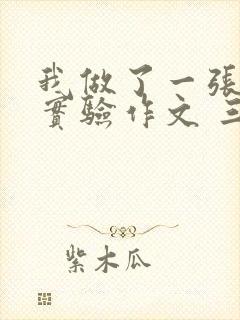 我做了一張
實驗作文 三
紫木瓜